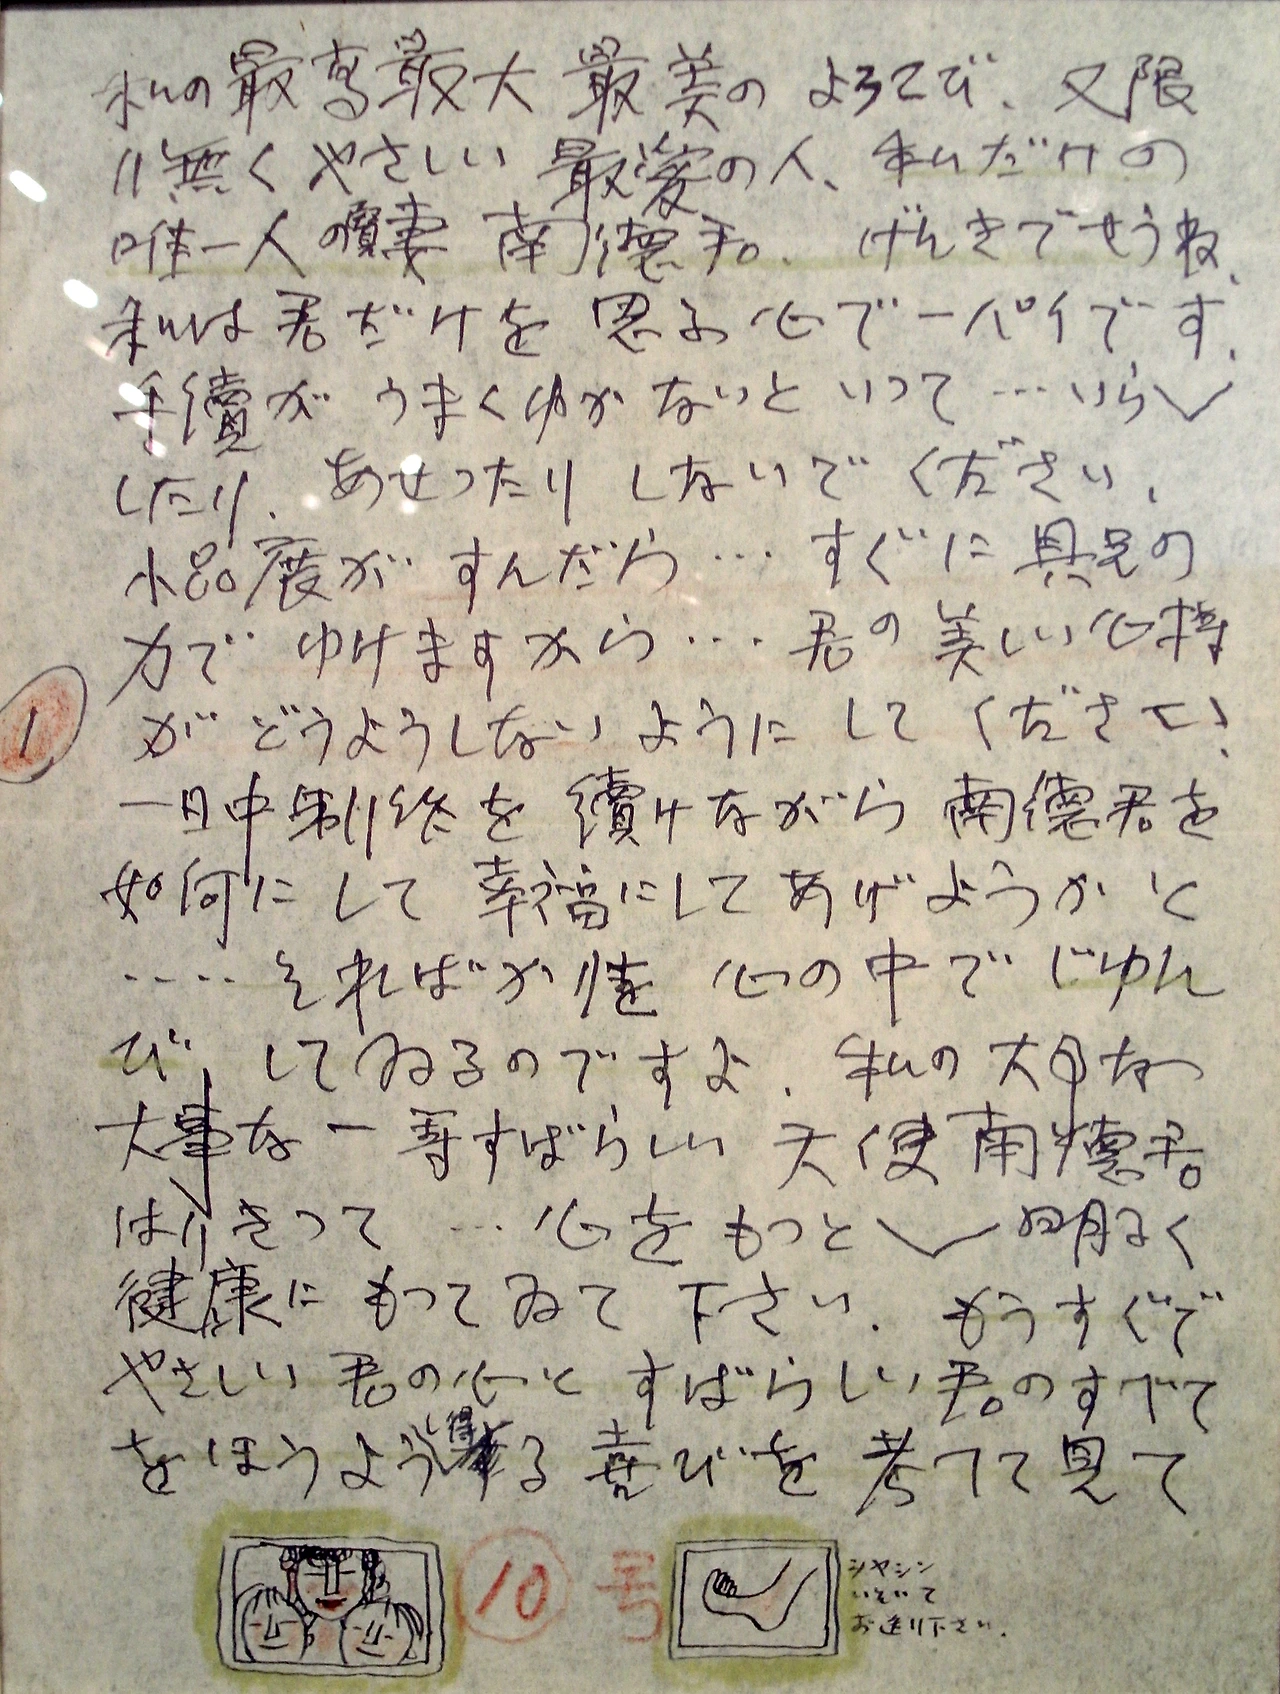 私の最高最大最美のよろこび、又限
り無くやさしい最愛の人、私だけの
唯一人の寳妻 南德君。げんきでせうね、
私は君だけを思ふ心で一パイです、
手續がうまくゆかないといって…いら〱
したり、あせったりしないでください、
小品展がすんだら…すぐに具足の
力でゆけますから…君の美しい心持
がどうようしないようにしてくださて!
一日中制作を續けながら南德君を
如何にして幸福にしてあげようかと
‥‥そればかりを心の中でじゆん
びしてゐるのですよ、私の大切な
大事な一番すばらしい天使南德君。
はりきって…心をもっと〱明るく
健康にもってゐて下さい、もうすぐで
やさしい君の心とすばらしい君のすべて
をほうようし得る喜びを考へて見て
1
10号
シャシン
いそいで
お送り下さい、